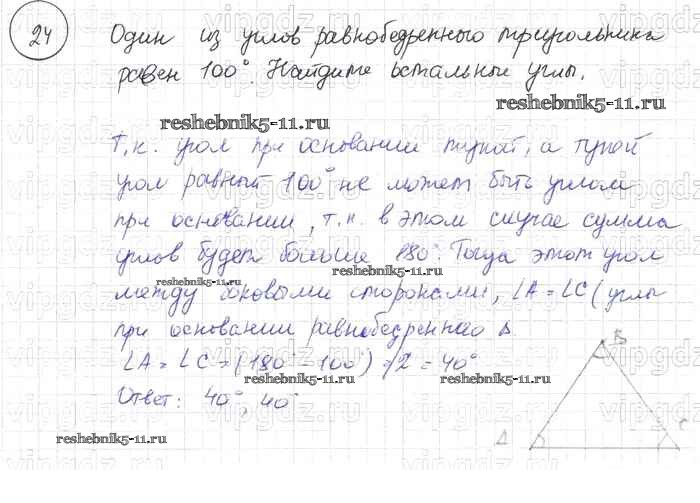 24 Один из углов равнобедренного треугольника
равен 100°. Найдите остальные углы.
reshebnik5-11.ru
reshebnik5-11.ru
Т.к. угол при основании тупой, а тупой
угол равный 100° не может быть углом
при основании, т.к. в этом случае сумма
углов будет больше 180°. Тогда этот угол
reshebnik5-11.ru
reshebnik5-11.ru
между боковыми сторонами, ∠A = ∠C (углы
при основании равнобедренного Δ.
∠A = ∠C = (180 - 100°) : 2 = 40°
reshebnik5-11.ru
reshebnik5-11.ru
Ответ: 40°, 40°
B
A
C
reshebnik5-11.ru
vipgdz.ru